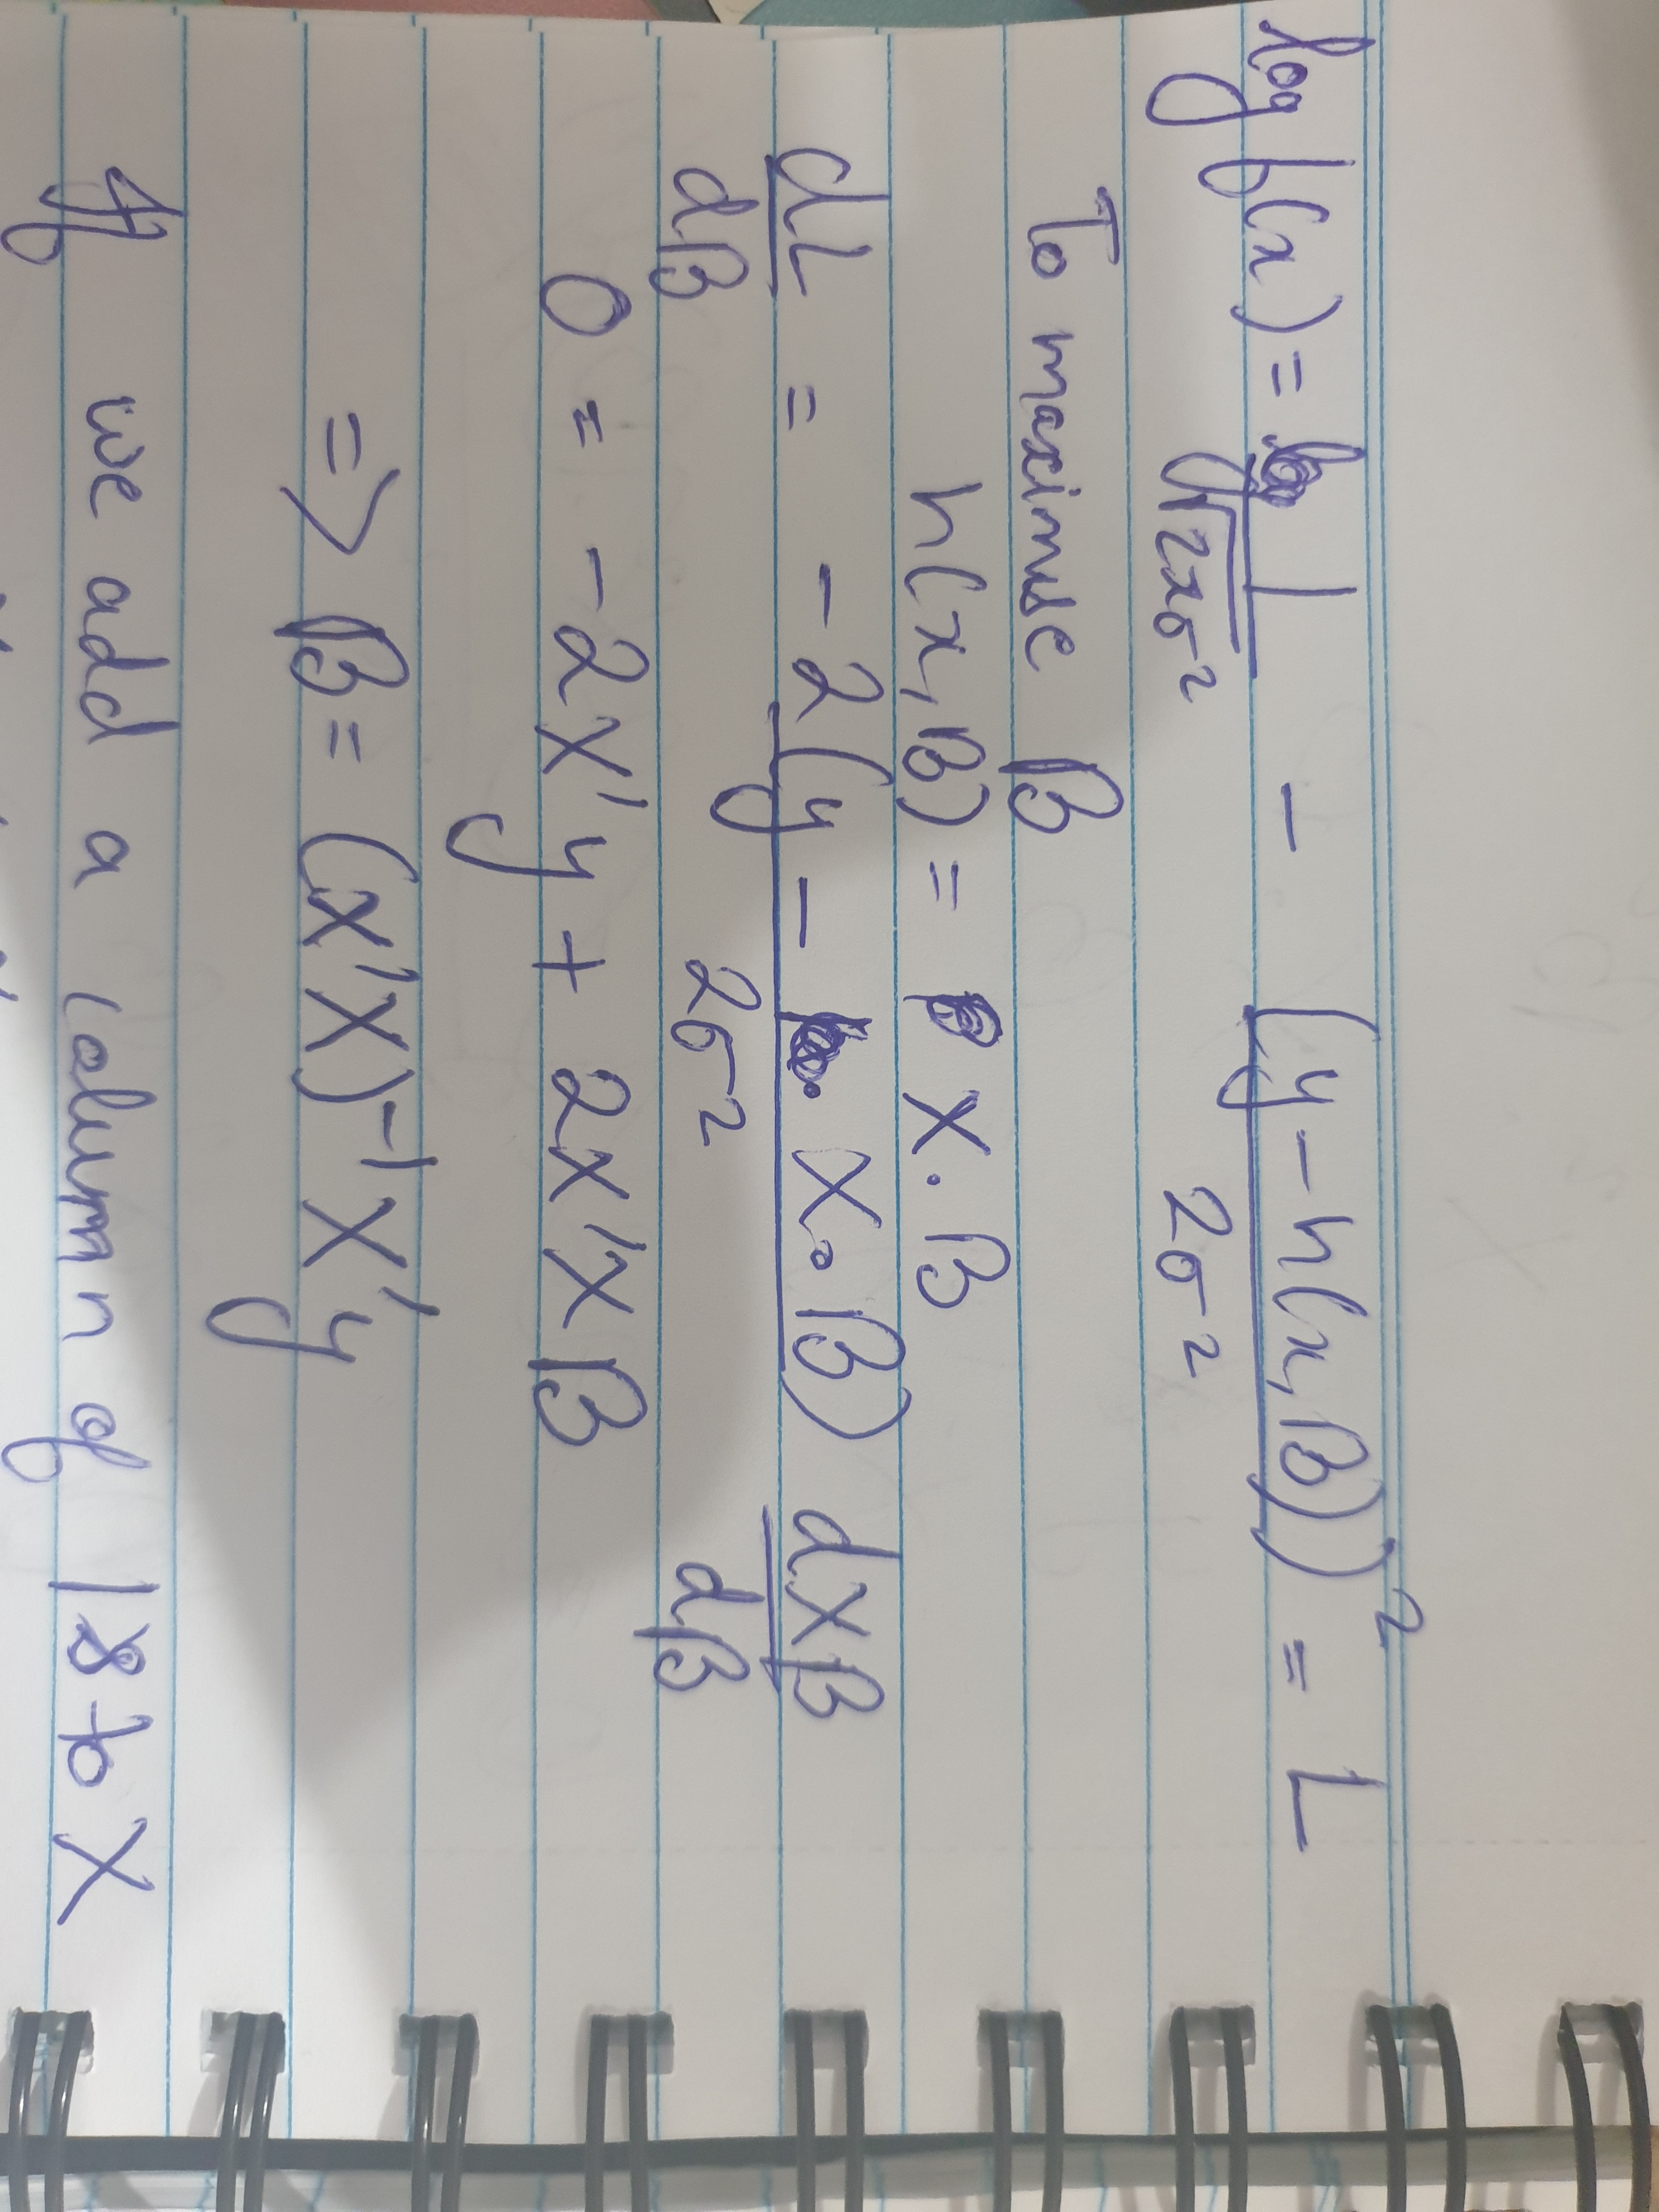 log f(x) = 1/√2πσ² - (y - h(x, B))²/2σ² = L
To maximise B
h(x, B) = X · B
dL/dB = -2(y - X · B)/2σ² dXB/dB
0 = -2X'y + 2X'XB
=> B = (X'X)⁻¹X'y
If we add a column of 1s to X